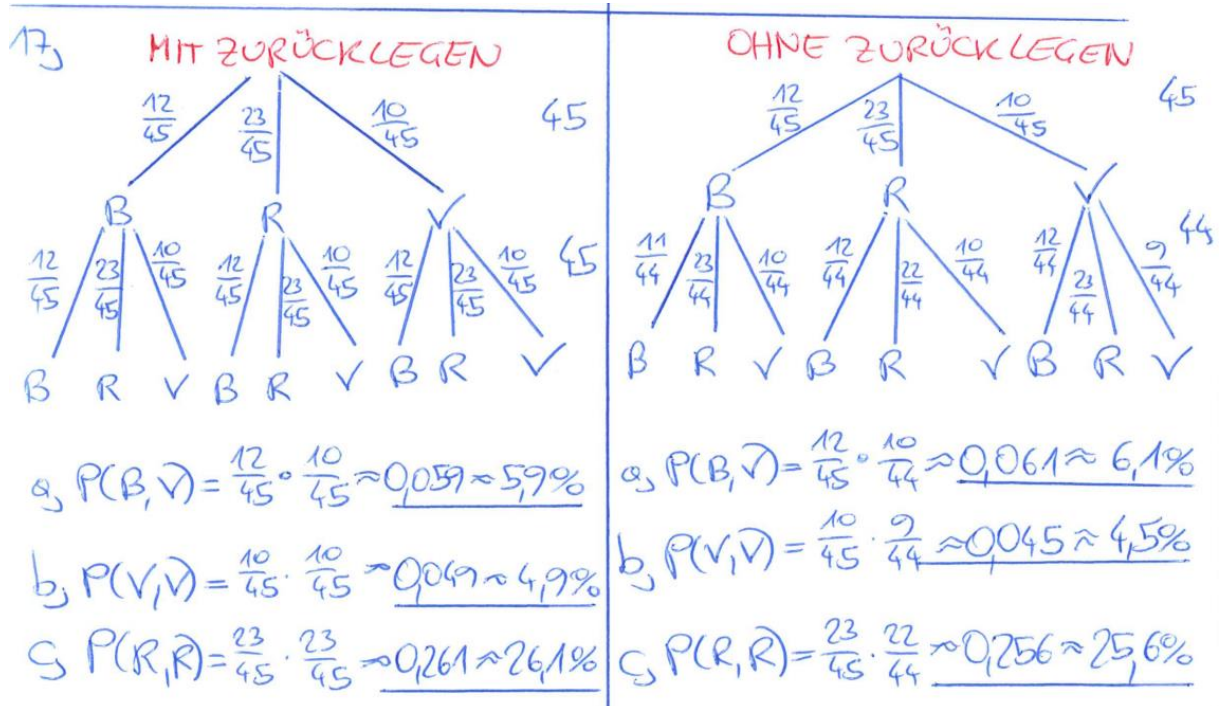 17) MIT ZURÜCKLEGEN
12/45 23/45 10/45 45
B R V
12/45 23/45 10/45 12/45 23/45 10/45 12/45 23/45 10/45 45
B R V B R V B R V
a) P(B,V) = 12/45 · 10/45 ≈ 0,059 ≈ 5,9%
b) P(V,V) = 10/45 · 10/45 ≈ 0,049 ≈ 4,9%
c) P(R,R) = 23/45 · 23/45 ≈ 0,261 ≈ 26,1%
OHNE ZURÜCKLEGEN
12/45 23/45 10/45 45
B R V
11/44 23/44 10/44 12/44 22/44 10/44 12/44 23/44 9/44 44
B R V B R V B R V
a) P(B,V) = 12/45 · 10/44 ≈ 0,061 ≈ 6,1%
b) P(V,V) = 10/45 · 9/44 ≈ 0,045 ≈ 4,5%
c) P(R,R) = 23/45 · 22/44 ≈ 0,256 ≈ 25,6%